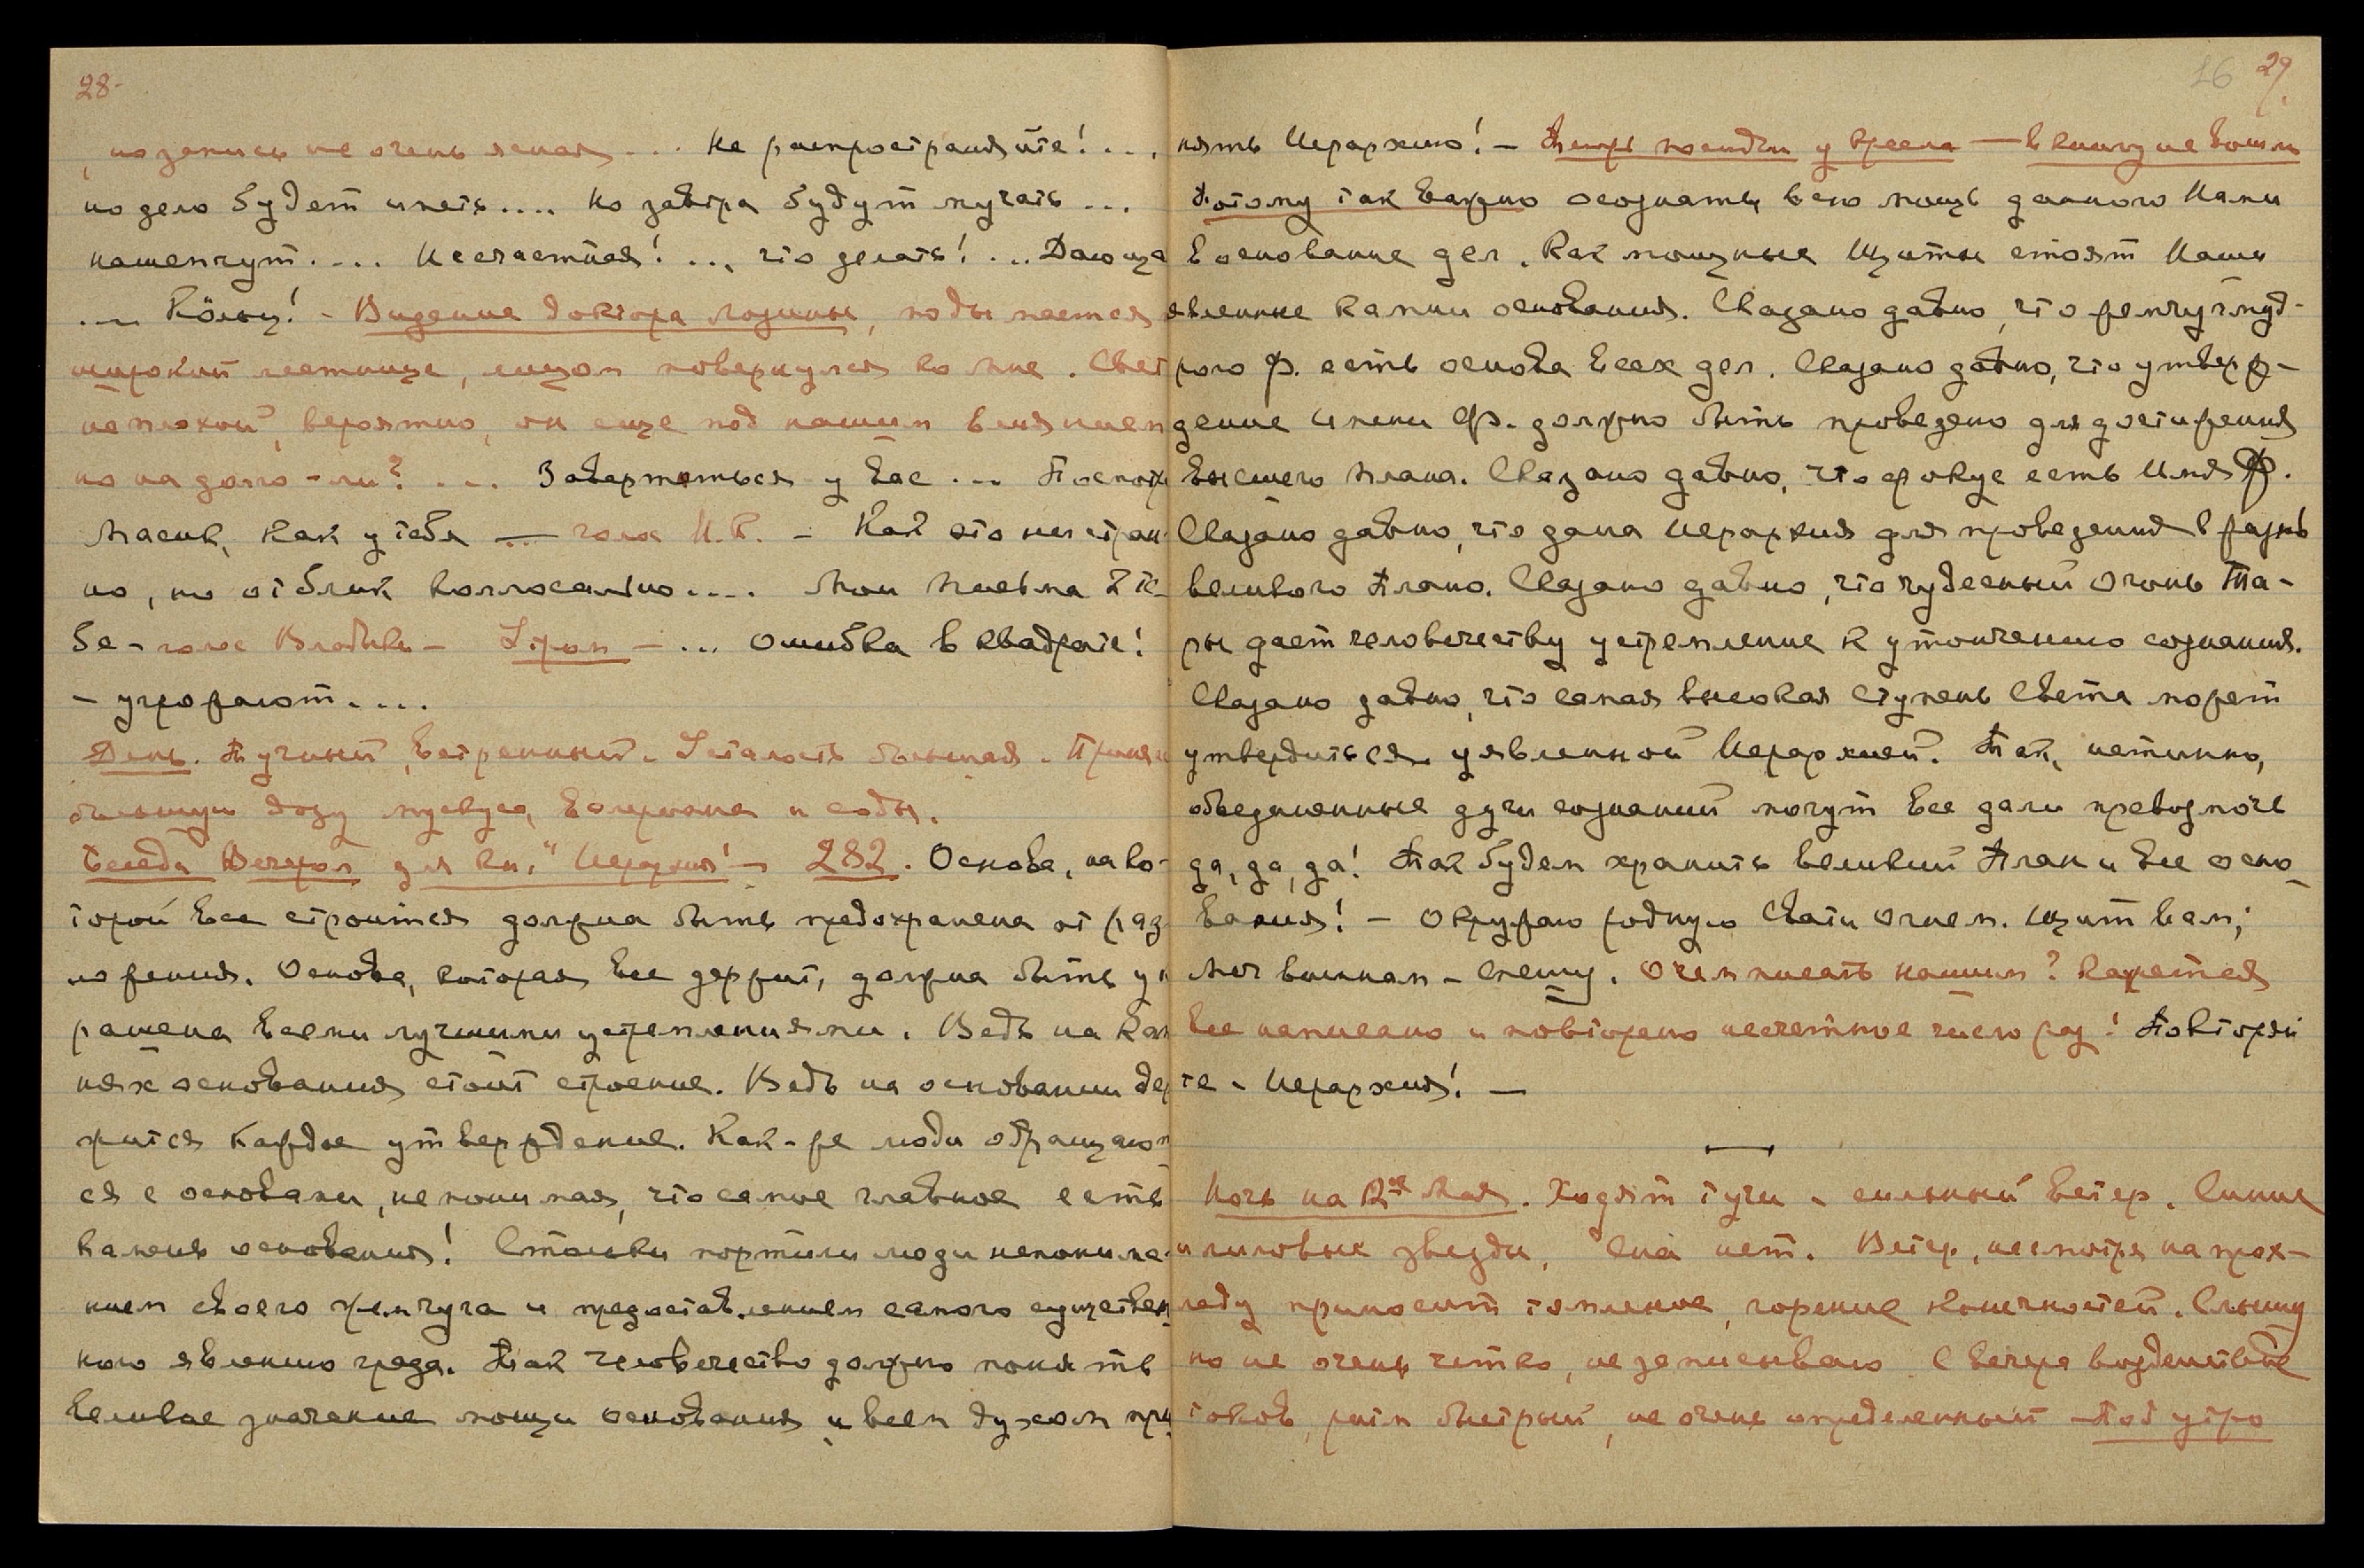 28-
, но запись не очень ясная ... Не распространяйте! ...
но дело будет иметь .... Но завтра будут мучать ...
нашепчут .... Несчастная! ... что делать! ...
... Кольц! - Видение доктора Лозины, подымается
широкой лестнице, лицом повернулся ко мне.
неплохой, вероятно, он еще под нашим влиянием
но на долго-ли? ... Завертеться у вас ...
Масик, как у тебя — ... голос Н.К. - Как это ни стран-
но, но отблик коллосально .... Мои письма
бе - голос Владыки - Утром - ... Ошибка в квадрате!
- угрожают ....
День. Тучный, ветренный. Усталость большая.
большую дозу мускуса, валериана и соды.
Беседа Вечером для кн. "Иерархия" - 282. Основа, на ко-
торой все строится должна быть предохранена от раз-
ложения. Основа, которая все держит, должна быть ук
рашена всеми лучшими устремлениями. Ведь на кам
нях основания стоит строение. Ведь на основании дер
жится каждое утверждение. Как-же люди обращают
ся с основами, не понимая, что самое главное есть
камень основания! Столько портили люди непонима-
нием своего жемчуга и предоставлением самого существен
ного явлению града. Так человечество должно понять
великое значение мощи основания и всем духом при
16 29.
нять Иерархию! - у кресла — в книгу не вошли
Потому так важно осознать всю мощь данного Нами
в основание дел. Как мощные Щиты стоят Наши
явленные камни основания. Сказано давно, что жемчуг муд-
рого Ф. есть основа всех дел. Сказано давно, что утверж-
дение имени Ф. должно быть проведено для достижения
высшего плана. Сказано давно, что фокус есть Имя Ф.
Сказано давно, что дана Иерархия для проведения в жизнь
великого Плана. Сказано давно, что чудесный огонь Та-
ры дает человечеству устремление к утончению сознания.
Сказано давно, что самая высокая ступень Света может
утвердиться явленной Иерархией. Так, истинно,
объединенные духи сознаний могут все дали превозмочь
да, да, да! Так будем хранить великий План и все осно-
вания! - Окружаю родную Свати огнем. Щит вам;
Меч вынимаю - спешу. О чем писать нашим? Кажется
все написано и повторено несчетное число раз! Повторяй
те - Иерархия! —
Ночь на 2ое Мая. Ходят тучи - сильный ветер. Синие
и лиловые звезды, сна нет. Ветер, несмотря на прох-
ладу приносит томление, горение конечностей. Слышу
но не очень четко, не записываю. С вечера воздействие
токов, ритм быстрый, не очень определенный - Под утро